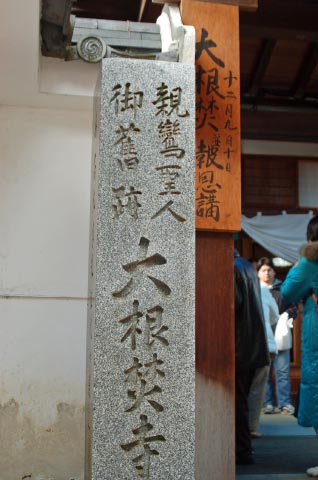 親鸞聖人
御舊跡
大根焚寺
大根焚 報恩講
十二月九日十日